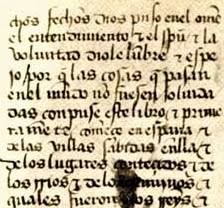 chos fechos dios puso en el ome
el entendimiento τ el spũ τ la
voluntad diole libre τ espe
jo por q̃ las cosas q̃ pasan
en el mũdo no fuesen solvida
das conpuse este libro τ prime
ra me te comẽce en españa τ
de las villas sabidas en ella τ
de los lugares contecidos τ de
los rrios τ de los caminos τ
quales fueron los reys τ